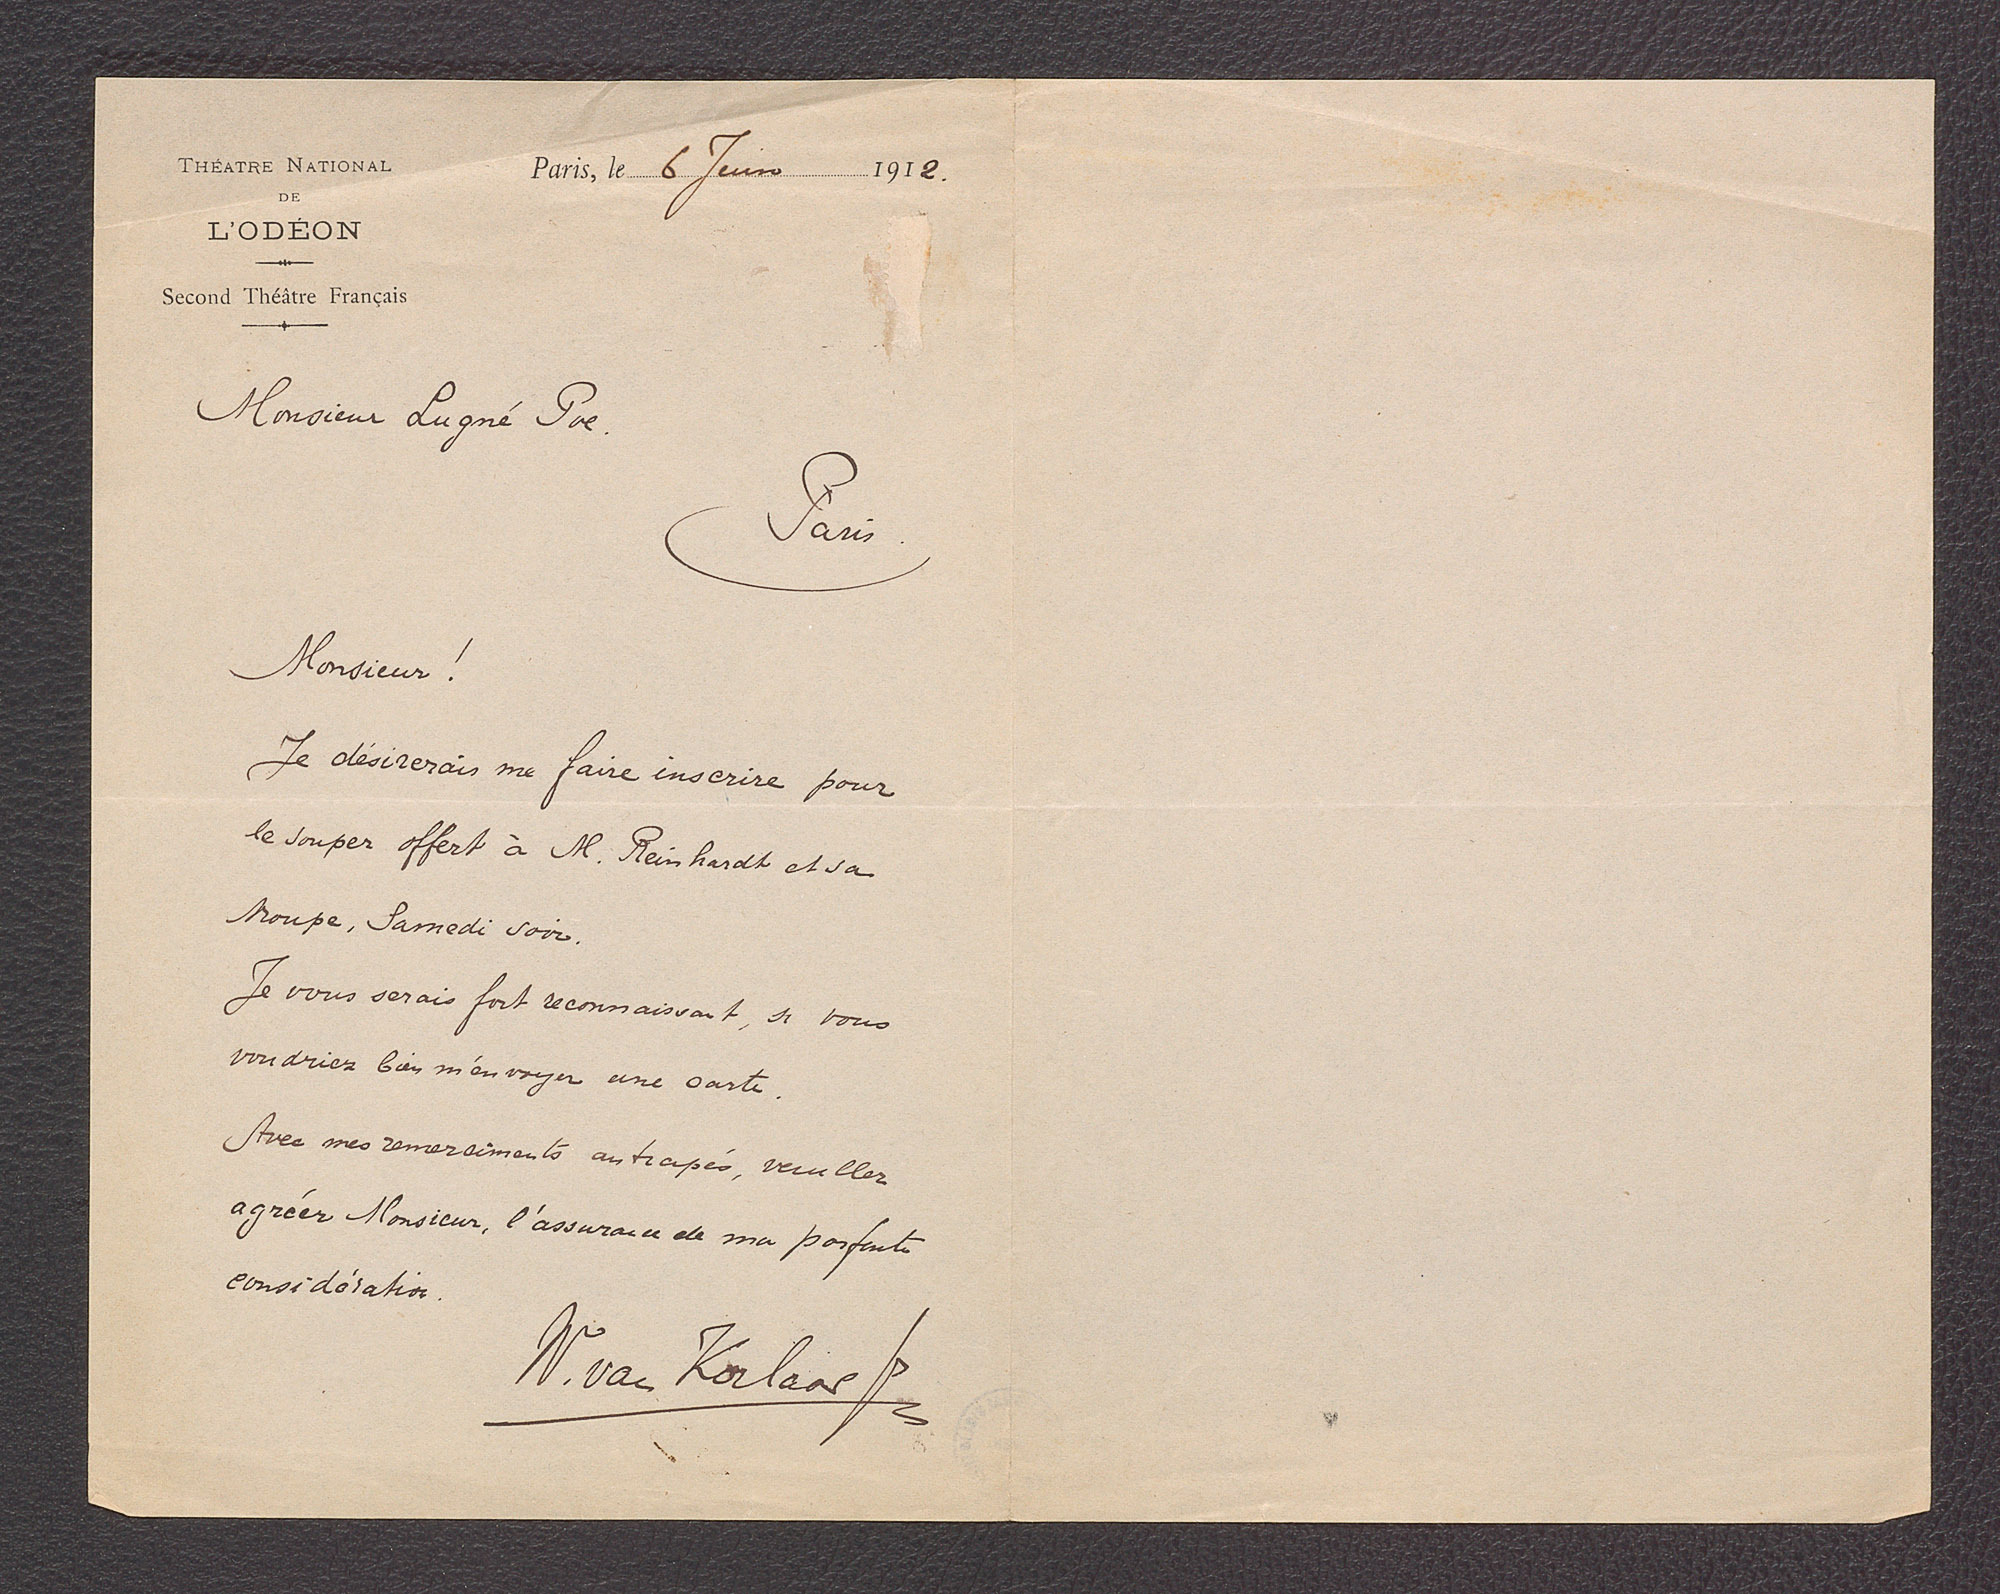 THÉATRE NATIONAL
DE
L'ODÉON
Second Théâtre Français
Paris, le 6 Juin 1912.
Monsieur Lugné Poe.
Paris.
Monsieur !
Je désirerais me faire inscrire pour
le souper offert à M. Reinhardt et sa
troupe, Samedi soir.
Je vous serais fort reconnaissant, si vous
voudriez bien m'envoyer une carte.
Avec mes remerciments anticipés, veuillez
agréer Monsieur, l'assurance de ma parfaite
considération.
W. van Korlaar Jr